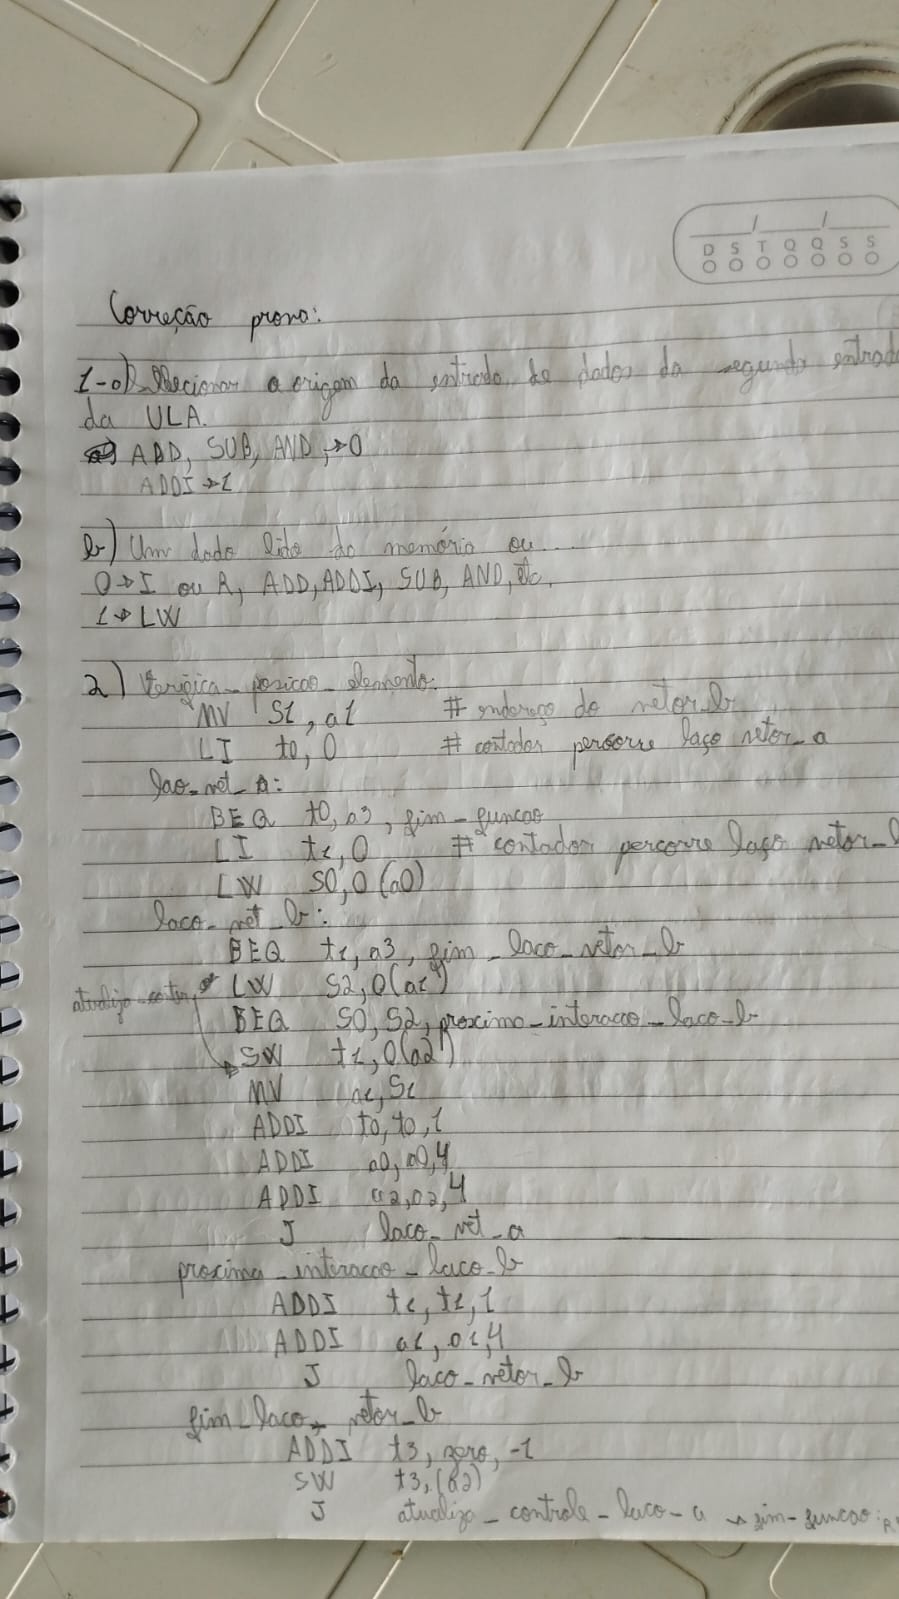 D S T Q Q S S
Correção prova:
1-a) Selecionar a origem da entrada de dados da segunda entrada
da ULA.
ADD, SUB, AND, → 0
ADDI → 1
b) Um dado lido da memória ou...
0 → I ou R, ADD, ADDI, SUB, AND, etc.
1 → LW
2) Verifica_posicao_elemento:
MV S1, a1 # endereço do vetor_b
LI t0, 0 # contador percorre laço vetor_a
lao_vet_A:
BEQ t0, a3, fim_funcao
LI t1, 0 # contador percorre laço vetor_b
LW S0, 0(a0)
laco_vet_b:
BEQ t1, a3, fim_laco_vetor_b
LW S2, 0(a1)
BEQ S0, S2, proximo_interacao_laco_b
SW t1, 0(a2)
MV a1, S1
ADDI t0, t0, 1
ADDI a0, a0, 4
ADDI a2, a2, 4
J laco_vet_a
proxima_interacao_laco_b
ADDI t1, t1, 1
ADDI a1, a1, 4
J laco_vetor_b
fim_laco_vetor_b
ADDI t3, zero, -1
SW t3, (a2)
J atualiza_controle_laco_a → fim-funcao: